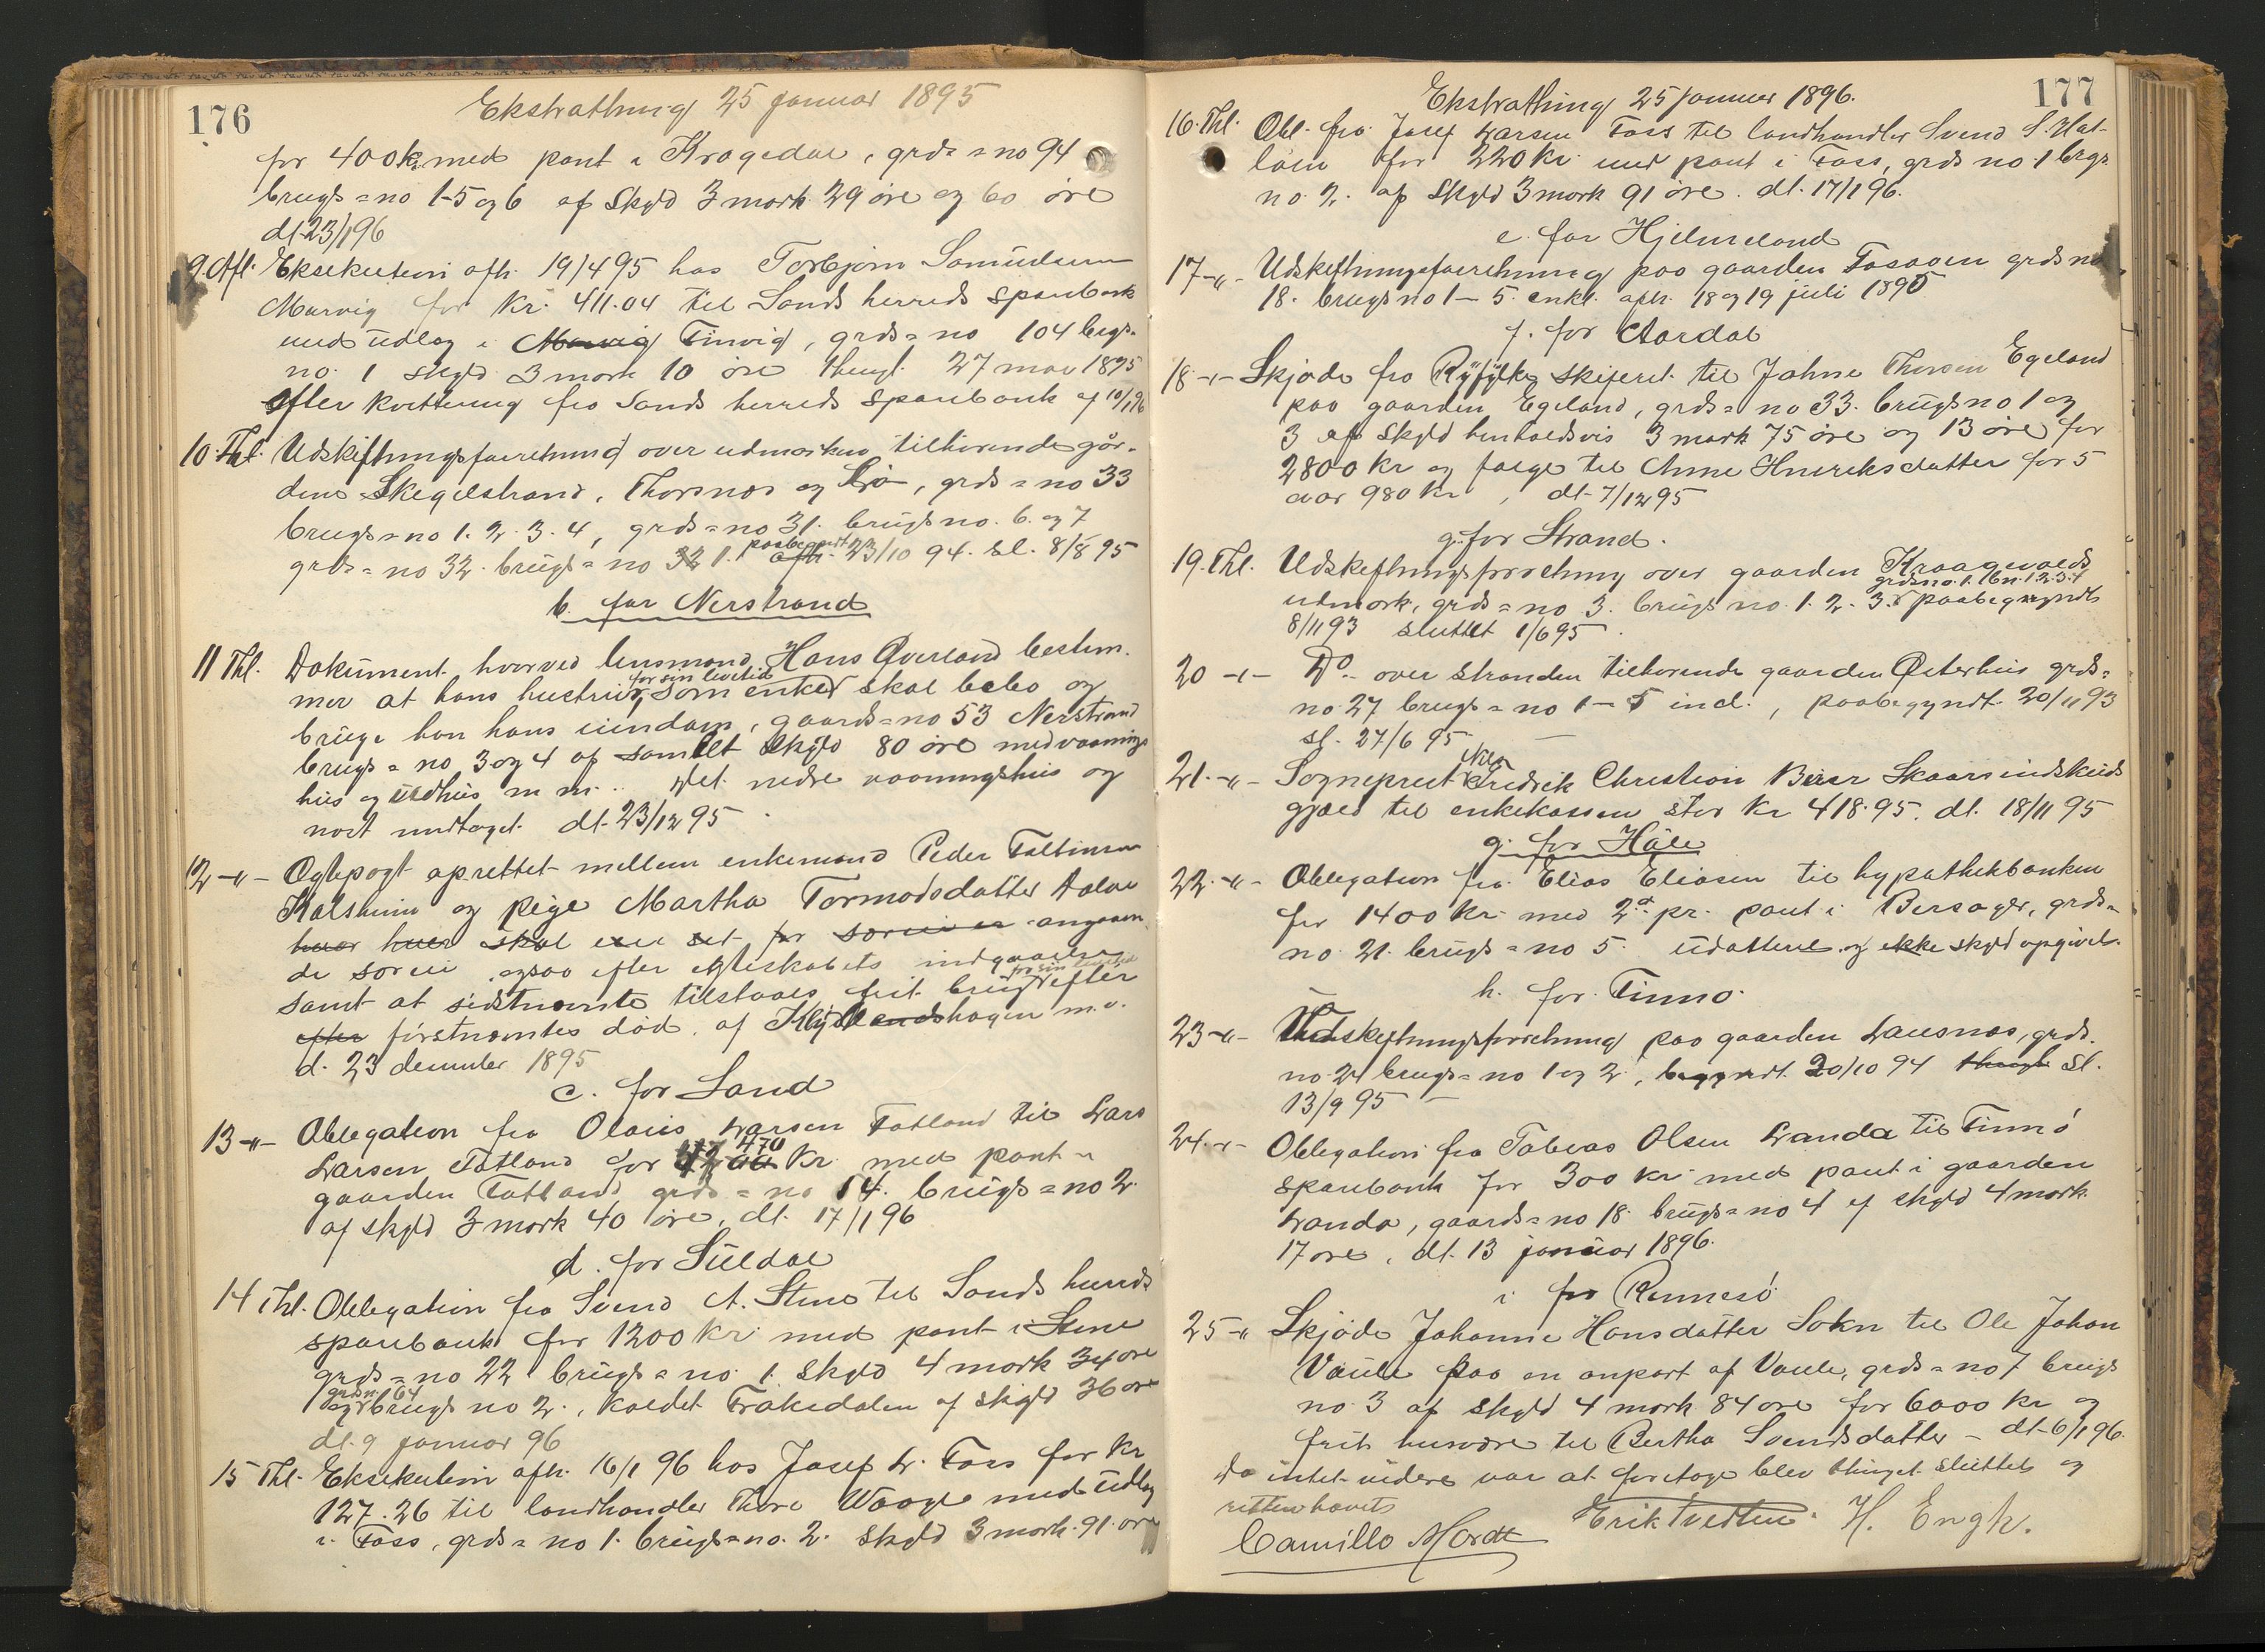 176
Ekstrathing 25 januar 1895
for 400 kr med pant i Kragedal, grds=no 94
brugs=no 1-5 og 6 af Skyld 3 mark 29 øre og 60 øre
dt. 23/1 96
9. Afl. Eksekution afh. 19/4 95 hos Torbjørn Samuelsen
Marvig for Kr. 411.04 til Sands herreds sparebank
med udlæg i Marvig Finvig, grds=no 104 brgs=
no. 1 skyld 3 mark 10 øre thingl. 27 mai 1895
Efter kvittering fra Sands herreds sparebank af 10/1 96
10. Thl. Udskiftningsforretning over udmarken tilhørende går-
dene Skegelstrand, Thorsnæs og Liø, grds=no 33
brugs=no 1. 2. 3. 4, grds=no 31. brugs no. 6. og 7
grds=no 32. brugs=no 32 1. afh. paabegyndt 23/10 94. sl. 8/8 95
b. for Nerstrand
11 Thl. Dokument hvorved lensmand Hans Øverland bestem-
mer at hans hustru for sin levetid som enke skal bebo og
bruge han hans eiendom, gaards=no 53 Nerstrand
brugs=no 3 og 4 af samlet skyld 80 øre med vaanings
hus og udhus m. m. Det nedre vaaningshus og
nøst undtaget. dt. 23/12 95.
12 -"- Egtepagt oprettet mellem enkemand Peder Faltinsen
Kalsheim og pige Martha Tormodsdatter Aalvi
hvor hver skal eie sit for særeie angaaen
de særeie ogsaa efter egteskabets indgaaelse
samt at sidstnævnte tilstaaes frit brug for sin levetid efter
efter førstnævntes død af Klydlandshagen m.v.
d. 23 december 1895
c. for Sand
13 -"- Obligation fra Olaus Larsen Fatland til Lars
Larsen Fatland for 470 Kr. med pant i
gaarden Fatland grds=no 14. brugs=no 2.
af skyld 3 mark 40 øre, dt. 17/1 96
d. for Suldal
14 Thl. Obligation fra Svend A. Stene til Sands herreds
sparebank for 1200 Kr. med pant i Stene
grds=no 22 brugs=no. 1. skyld 4 mark 34 øre
og grdsn. 64 brugs no 2., kaldet Fraksdalen af skyld 36 øre
dt. 9 januar 96
15 Thl. Eksekution afh. 16/1 96 hos Josef L. Foss for Kr
127.26 til landhandler Thore Waage med udlæg
i Foss, grds=no 1. brugs=no. 2. skyld 3 mark. 91. øre
177
Ekstrathing 25 januar 1896.
16. Thl. Obl. fra Josef Larsen Foss til landhandler Svend S. Hat-
løen for 220 kr. med pant i Foss, grds no 1 brgs
no. 2. af skyld 3 mark 91 øre. dt. 17/1 96.
e. for Hjelmeland
17 -"- Udskiftningsforretning paa gaarden Fosaaen grds no
18. brugs no 1 - 5. enkl. afh. 18 og 19 juli 1895
f. for Aardal
18 -"- Skjøde fra Ryfylke skifteret til Jahne Thorsen Egeland
paa gaarden Egeland, grds=no 33. brugs no 1 og
3 af skyld henholdsvis 3 mark 75 øre og 13 øre for
2800 kr og følge til Anne Henriksdatter for 5
aar 980 kr, dt. 7/12 95
g. for Strand.
19. Thl. Udskiftningsforretning over gaarden Kraagevolds
udmark, grds=no 3. brugs no. 1. 2. 3. grdsno. 1. bn. 1. 2. 3. 4 paabegyndt
8/11 93 sluttet 1/6 95.
20 -"- Do. over stranden tilhørende gaarden Østerhus grds=
no. 27 brugs=no 1 - 5 incl., paabegyndt 20/11 93
sl. 27/6 95 —
21. -"- Sogneprest Fredrik Christian Beer Skaars indskuds
gjæld til enkekassen stor Kr 418.95. dt. 18/11 95
g. for Håle
22. -"- Obligation fra Elias Eliasen til hypothekbanken
for 1400 kr. med 2d. pr. pant i Bersager, grds=
no. 21. brugs=no 5. udateret og ikke skyld opgivet.
h. for Finnø.
23 -"- Udskiftningsforretning paa gaarden Lausnæs, grds.
no 24 brugs=no 1 og 2, begyndt 20/10 94 thingl. sl.
13/9 95 —
24. -"- Obligation fra Tobias Olsen Landa til Finnø
sparebank for 300 kr med pant i gaarden
Landa, gaards=no 18. brugs=no 4 af skyld 4 mark
17 øre, dt. 13 januar 1896.
i for Rennesø
25 -" Skjøde Johanne Hansdatter Sokn til Ole Johan
Vaule paa en anpart af Vaule, grds=no 7 brugs
no. 3 af skyld 4 mark 84 øre for 6000 kr og
frit husvære til Bertha Svendsdatter — dt. 6/1 96.
Da intet videre var at foretage blev thinget sluttet og
retten hævet
Camillo Mordt Erik Tvedten. H. Engh.